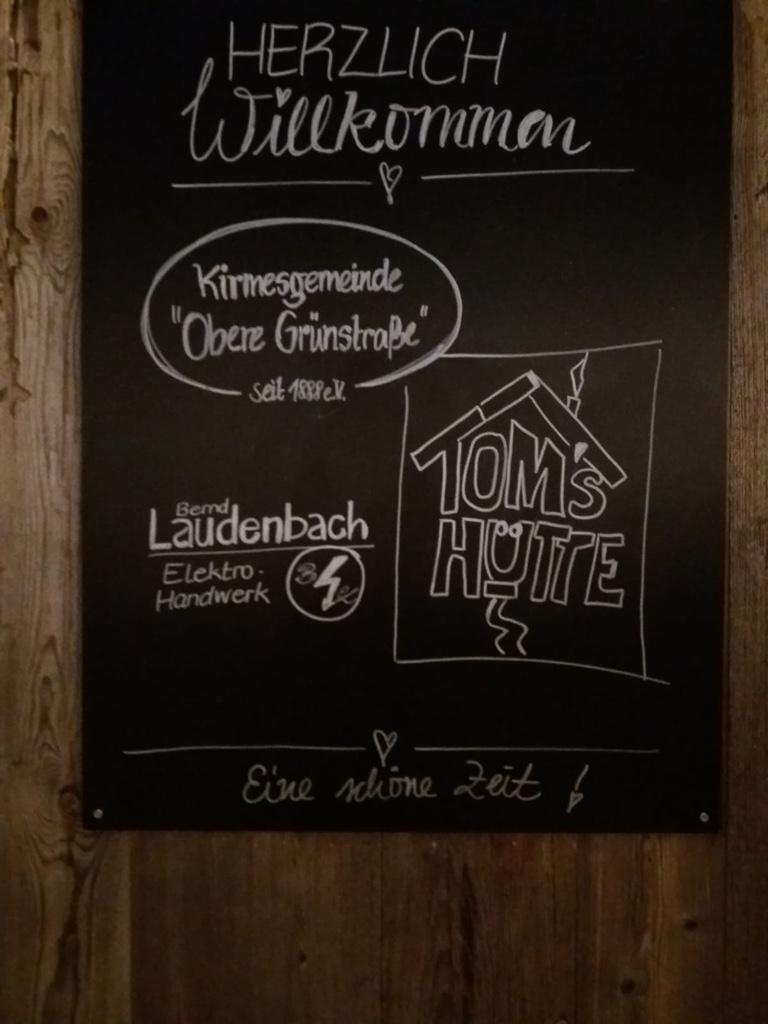 HERZLICH
Willkommen
Kirmesgemeinde
"Obere Grünstraße"
seit 1888 e.V.
Bernd
Laudenbach
Elektro-
Handwerk
TOM'S
HÜTTE
Eine schöne Zeit !